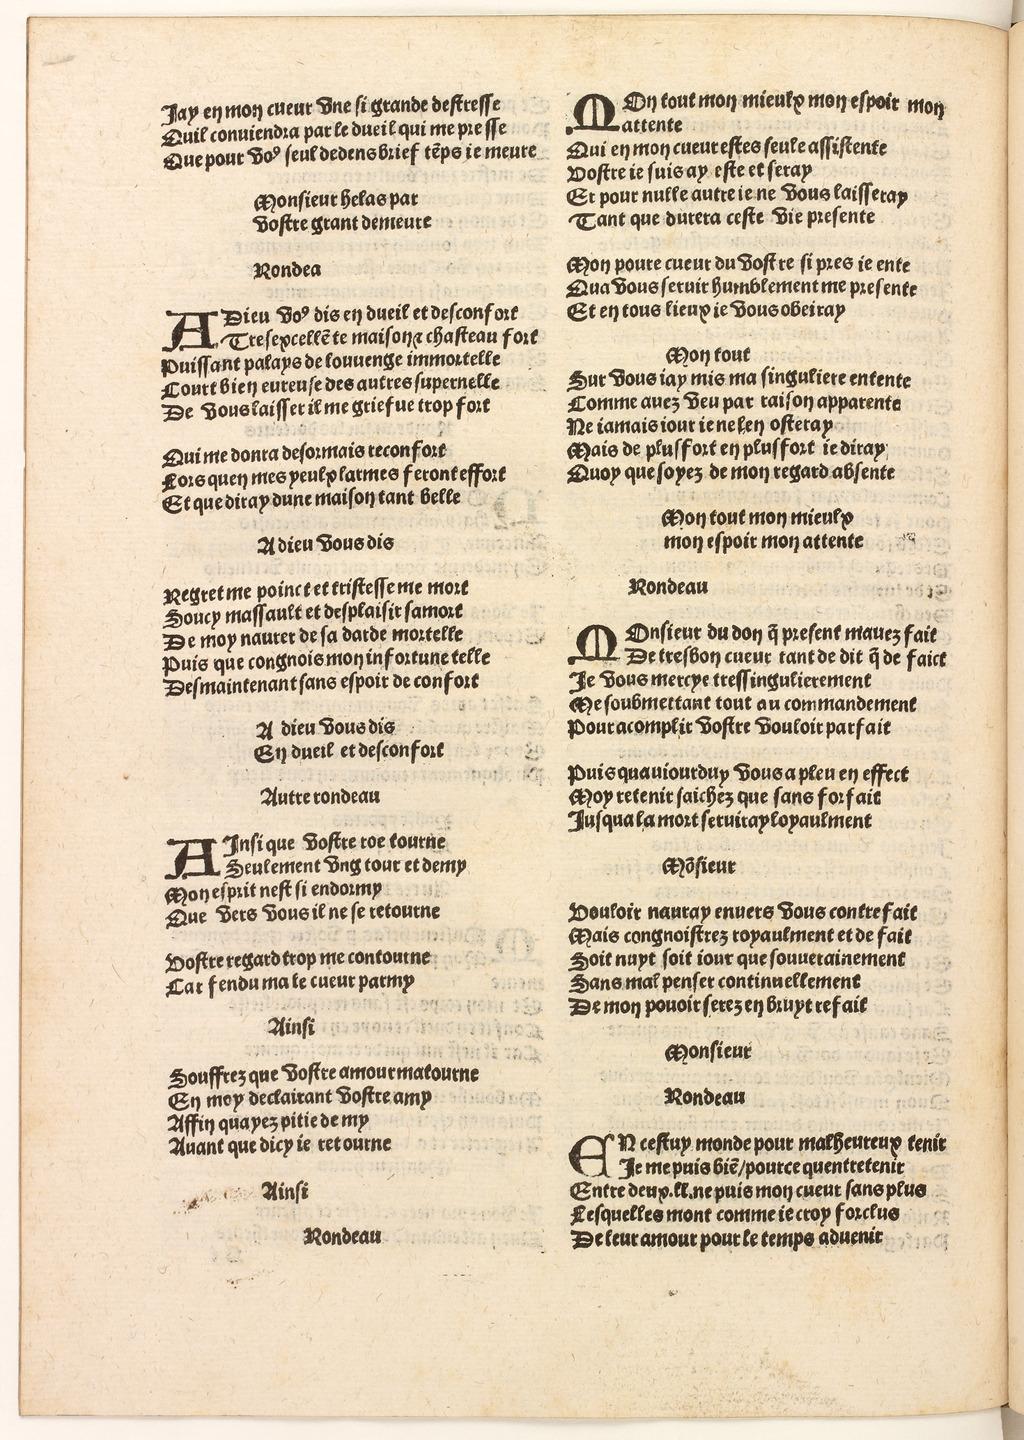 Jay en mon cueur vne si grande destresse
Quil conuiendra par le dueil qui me presse
Que pour voꝰ seul dedens brief tẽps ie meure
Monsieur helas par
Vostre grant demeure
Rondea
ADieu voꝰ dis en dueil et desconfort
Tresexcellẽte maison ⁊ chasteau fort
Puissant palays de louuenge immortelle
Court bien eureuse des autres supernelle
De vous laisser il me griefue trop fort
Qui me donra desormais reconfort
Lors quen mes yeulx larmes feront effort
Et que diray dune maison tant belle
A dieu vous dis
Regret me poinct et tristesse me mort
Soucy massault et desplaisir samort
De moy naurer de sa darde mortelle
Puis que congnois mon infortune telle
Desmaintenant sans espoir de confort
A dieu vous dis
En dueil et desconfort
Autre rondeau
AInsi que vostre roe tourne
Seulement vng tour et demy
Mon esprit nest si endormy
Que vers vous il ne se retourne
Vostre regard trop me contourne
Car fendu ma le cueur parmy
Ainsi
Souffrez que vostre amour matourne
En moy declairant vostre amy
Affin quayez pitie de my
Auant que dicy ie retourne
Ainsi
Rondeau
MOn tout mon mieulx mon espoir mon
attente
Qui en mon cueur estes seule assistente
Vostre ie suis ay este et seray
Et pour nulle autre ie ne vous laisseray
Tant que durera ceste vie presente
Mon poure cueur du vostre si pres ie ente
Qua vous seruir humblement me presente
Et en tous lieux ie vous obeiray
Mon tout
Sur vous iay mis ma singuliere entente
Comme auez veu par raison apparente
Ne iamais iour ie ne len osteray
Mais de plus fort en plus fort ie diray
Quoy que soyez de mon regard absente
Mon tout mon mieulx
mon espoir mon attente
Rondeau
MOnsieur du don q̃ present mauez fait
De tresbon cueur tant de dit q̃ de faict
Je vous mercye tressingulierement
Me soubmettant tout au commandement
Pour acomplir vostre vouloir parfait
Puis quauiourduy vous a pleu en effect
Moy retenir saichez que sans forfait
Jusqua la mort seruiray loyaulment
Mõsieur
Vouloir nauray enuers vous contrefait
Mais congnoistrez royaulment et de fait
Soit nuyt soit iour que souuerainement
Sans mal penser continuellement
De mon pouoir serez en bruyt refait
Monsieur
Rondeau
EN cestuy monde pour malheureux tenir
Je me puis biẽ/pource quentretenir
Entre deux.ll.ne puis mon cueur sans plus
Lesquelles mont comme ie croy forclus
De leur amour pour le temps aduenir